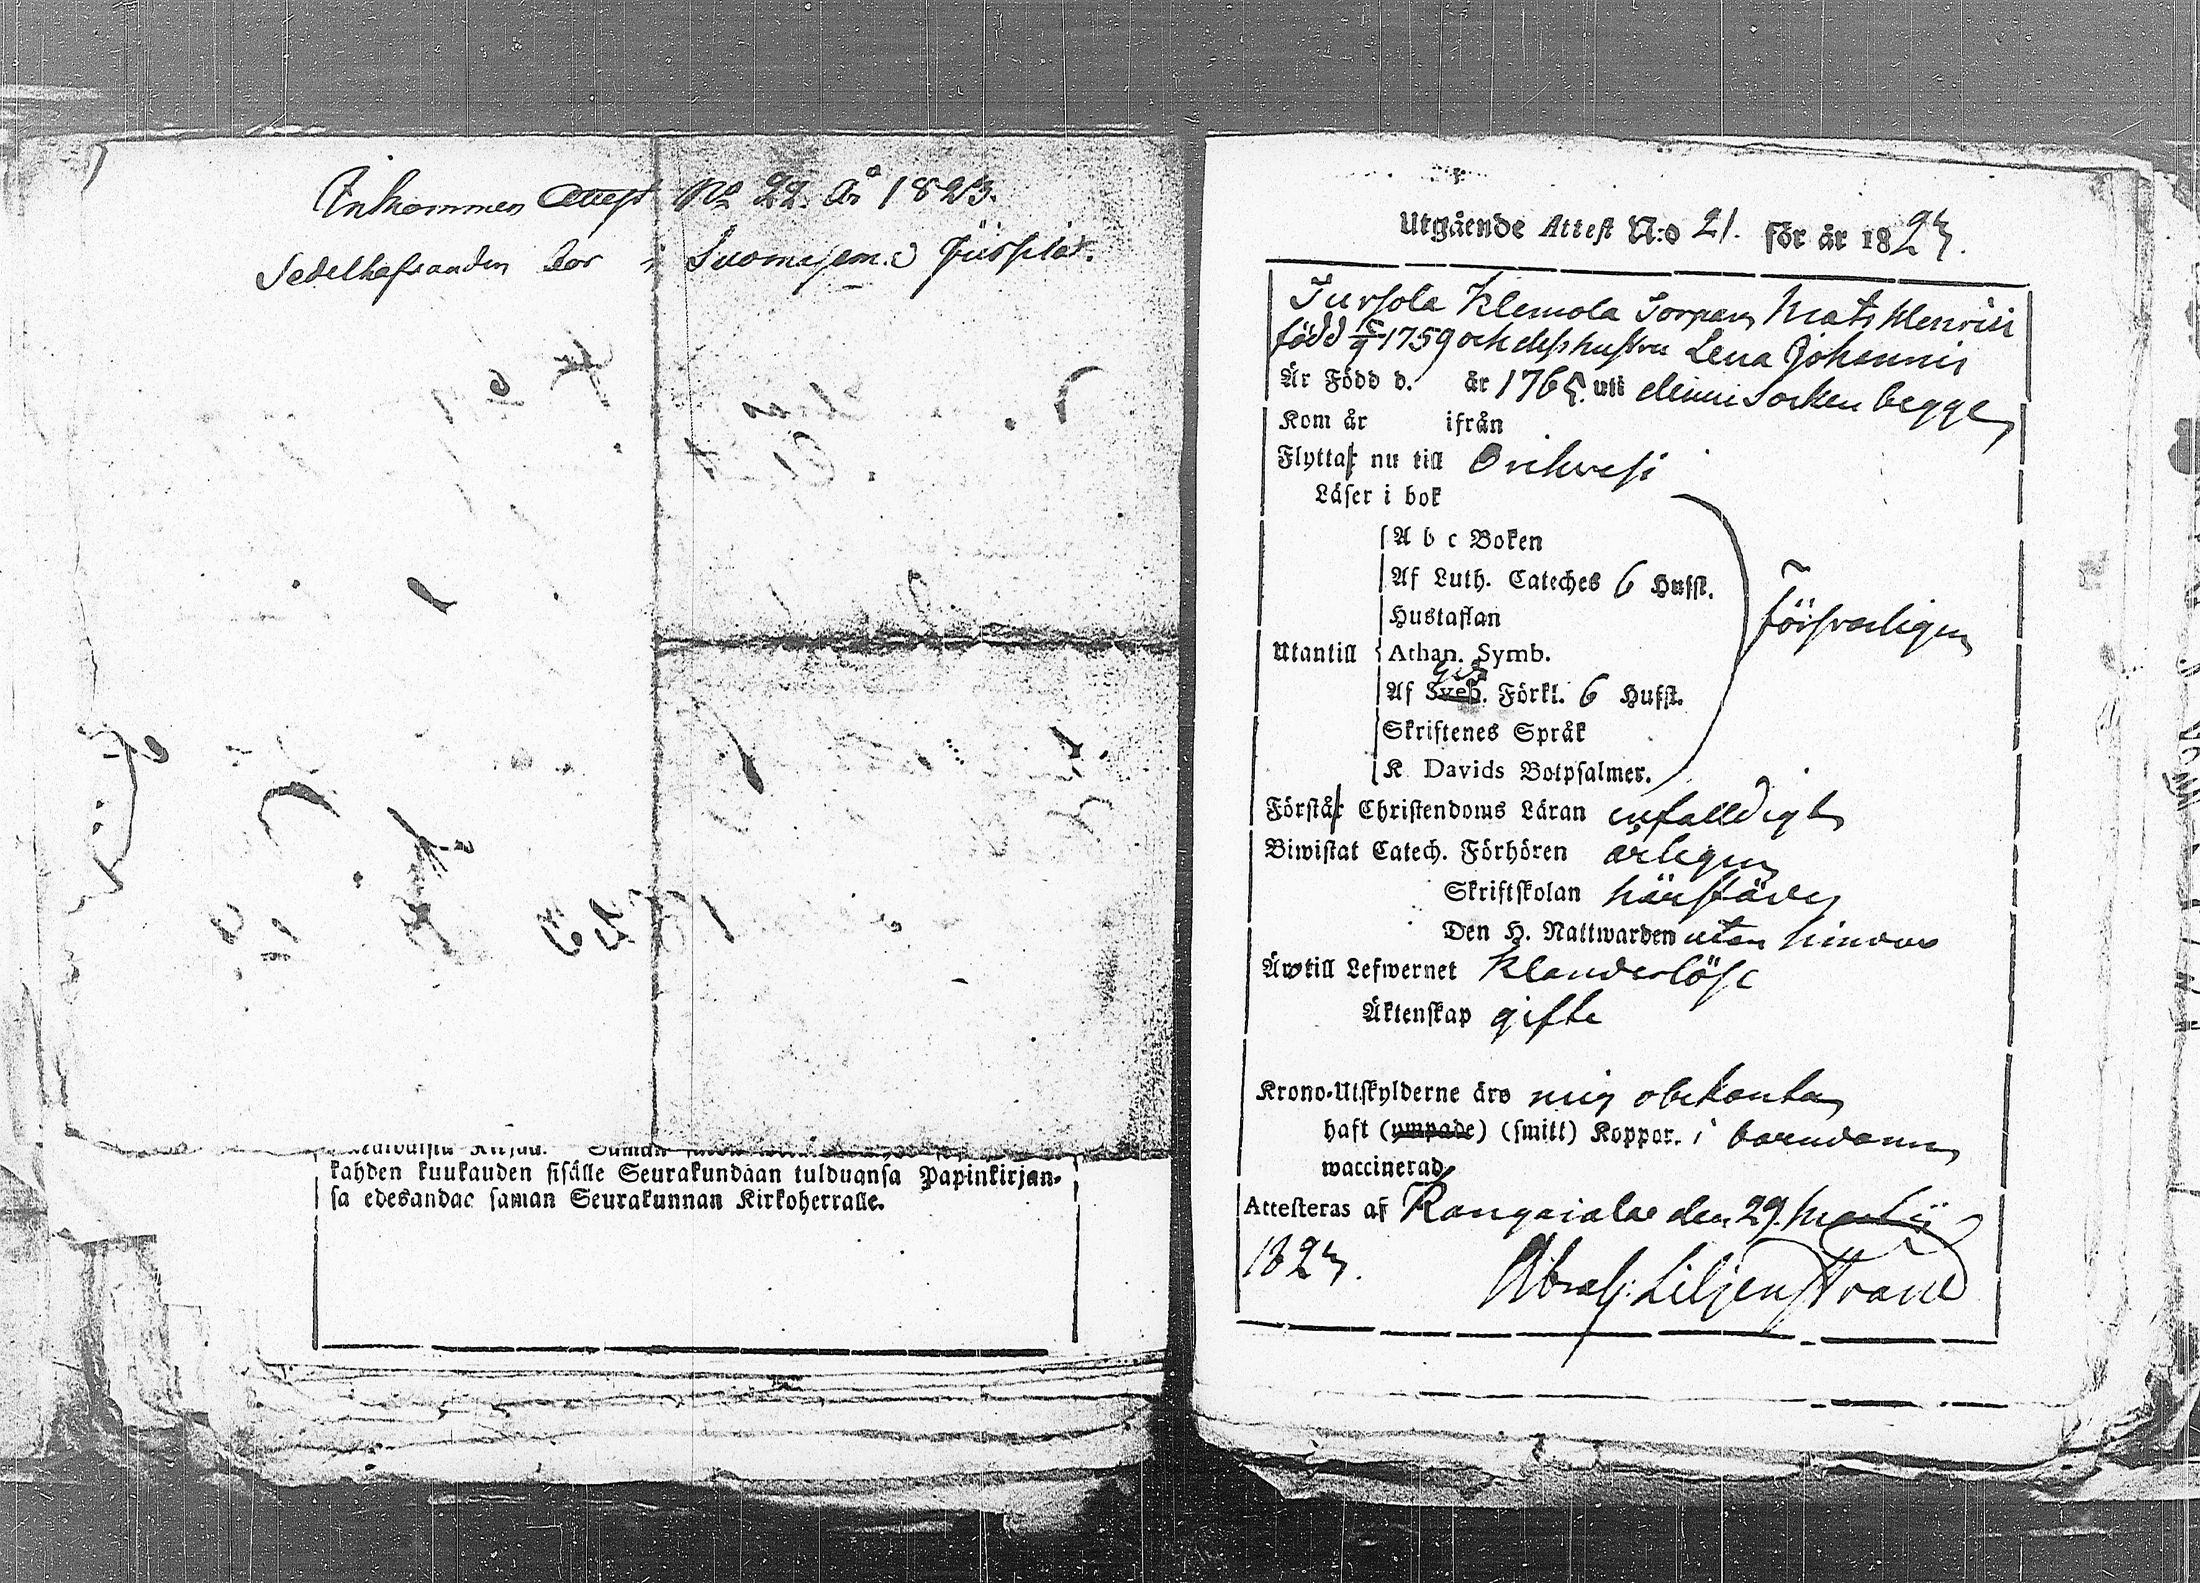 Inkommen Attest No 22. År 1823.
Sedelhafvanden bor i Suomasem. Jüssilä.
kahden kuukauden sisälle Seurakundaan tulduansa Papinkirjan-
sa edesandac saman Seurakunnan Kirkoherralle.
Utgående Attest N:o 21. för år 1823.
Tursola Klemola Torpare Mats Henrici
född 1759 och dess hustru Lena Johannis
Är Född d. år 1765. uti denne Socken begge
Kom år ifrån
Flytta nu till Orihvesi
Läser i bok
A b c Boken
Af Luth. Cateches 6 Hufst.
Hustaflan
Utantill Athan. Symb.
Af Sveb. Förkl. 6 Hufst.
Skriftenes Språk
K. Davids Botpsalmer.
försvarligen
Förstå Christendoms Läran enfalldigt
Biwistat Catech. Förhören årligen
Skriftskolan härstädes
Den H. Nattwarden utan hinder
Äro till Lefwernet Klanderlöse
Äktenskap gifte
Krono-Utskylderne äro mig obekanta
haft (ympade) (smitt) Koppor. i barndomen
waccinerad
Attesteras af Kangasala den 29. Martii
1823. Abrah: Liljenstrand